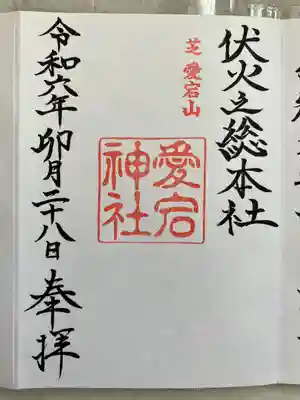 伏火之総本社
芝愛宕山
愛宕神社
令和六年卯月二十八日奉拝